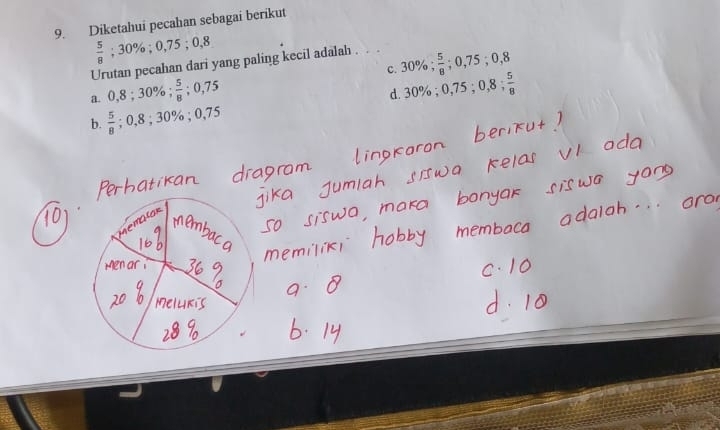 9. Diketahui pecahan sebagai berikut
5/8 ; 30% ; 0,75 ; 0,8
Urutan pecahan dari yang paling kecil adalah . . . .
a. 0,8 ; 30% ; 5/8 ; 0,75
c. 30% ; 5/8 ; 0,75 ; 0,8
b. 5/8 ; 0,8 ; 30% ; 0,75
d. 30% ; 0,75 ; 0,8 ; 5/8
10). Perhatikan diagram lingkaran berikut!
jika jumlah siswa kelas VI ada
50 siswa, maka banyak siswa yang
memiliki hobby membaca adalah... oran
Memasak
16%
Membaca
36%
Menari
20%
Melukis
28%
a. 8
c. 10
b. 14
d. 18